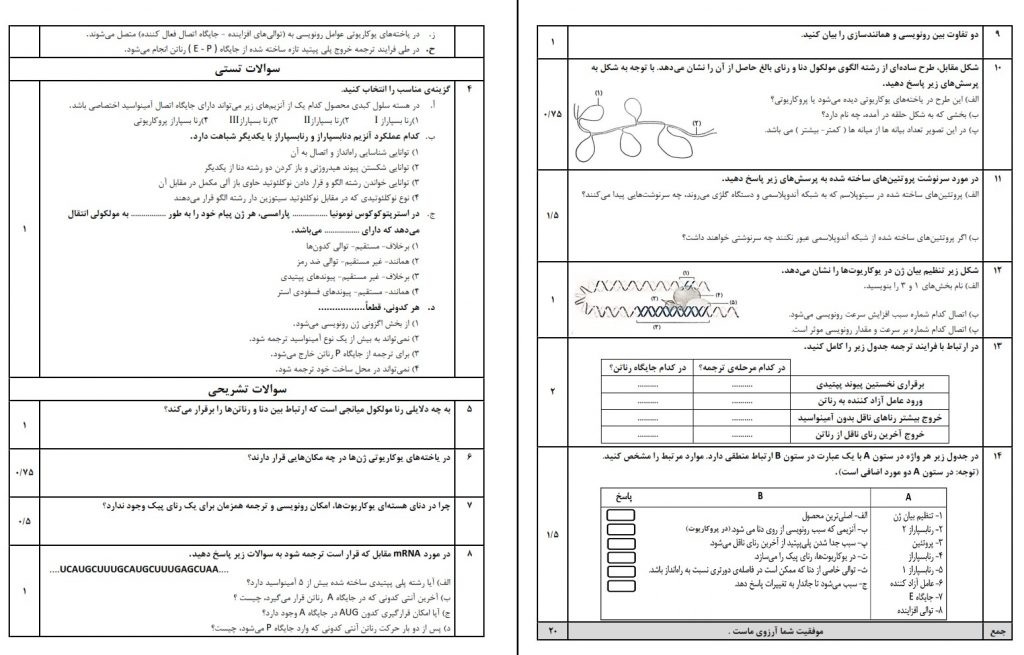 ز. در یاخته‌های یوکاریوتی عوامل رونویسی به (توالی‌های افزاینده – جایگاه اتصال فعال کننده) متصل می‌شوند.
ح. در طی فرایند ترجمه خروج پلی پپتید تازه ساخته شده از جایگاه ( E - P ) رناتن انجام می‌شود.
سوالات تستی
۴
گزینه‌ی مناسب را انتخاب کنید.
أ. در هسته سلول کبدی محصول کدام یک از آنزیم‌های زیر می‌تواند دارای جایگاه اتصال آمینواسید اختصاصی باشد.
۱) رنا بسپاراز I ۲) رنا بسپاراز II ۳) رنا بسپاراز III ۴) رنا بسپاراز پروکاریوتی
ب. کدام عملکرد آنزیم دنابسپاراز و رنابسپاراز با یکدیگر شباهت دارد.
۱) توانایی شناسایی راه‌انداز و اتصال به آن
۲) توانایی شکستن پیوند هیدروژنی و باز کردن دو رشته دنا از یکدیگر
۳) توانایی خواندن رشته الگو و قرار دادن نوکلئوتید حاوی باز آلی مکمل در مقابل آن
۴) نوع نوکلئوتیدی که در مقابل نوکلئوتید سیتوزین دار رشته الگو قرار می‌دهند
ج. در استرپتوکوکوس نومونیا ................ پارامسی، هر ژن پیام خود را به طور ................ به مولکولی انتقال
می‌دهد که دارای ................ می‌باشد.
۱
۱) برخلاف- مستقیم- توالی کدون‌ها
۲) همانند- غیر مستقیم- توالی ضد رمز
۳) برخلاف- غیر مستقیم- پیوندهای پپتیدی
۴) همانند- مستقیم- پیوندهای فسفودی استر
د. هر کدونی، قطعاً.................
۱) از بخش اگزونی ژن رونویسی می‌شود.
۲) نمی‌تواند به بیش از یک نوع آمینواسید ترجمه شود.
۳) برای ترجمه از جایگاه P رناتن خارج می‌شود.
۴) نمی‌تواند در محل ساخت خود ترجمه شود.
سوالات تشریحی
۵
به چه دلایلی رنا مولکول میانجی است که ارتباط بین دنا و رناتن‌ها را برقرار می‌کند؟
۱
۶
در یاخته‌های یوکاریوتی ژن‌ها در چه مکان‌هایی قرار دارند؟
۰/۷۵
۷
چرا در دنای هسته‌ای یوکاریوت‌ها، امکان رونویسی و ترجمه همزمان برای یک رنای پیک وجود ندارد؟
۰/۵
۸
در مورد mRNA مقابل که قرار است ترجمه شود به سوالات زیر پاسخ دهید.
....UCAUGCUUUGCAUGCUUUGAGCUAA....
الف) آیا رشته پلی پپتیدی ساخته شده بیش از ۵ آمینواسید دارد؟
ب) آخرین آنتی کدونی که در جایگاه A رناتن قرار می‌گیرد، چیست ؟
ج) آیا امکان قرارگیری کدون AUG در جایگاه A وجود دارد؟
د) پس از دو بار حرکت رناتن آنتی کدونی که وارد جایگاه P می‌شود، چیست؟
۱
۹
دو تفاوت بین رونویسی و همانندسازی را بیان کنید.
۱
۱۰
شکل مقابل، طرح ساده‌ای از رشته الگوی مولکول دنا و رنای بالغ حاصل از آن را نشان می‌دهد. با توجه به شکل به
پرسش‌های زیر پاسخ دهید.
الف) این طرح در یاخته‌های یوکاریوتی دیده می‌شود یا پروکاریوتی؟
ب) بخشی که به شکل حلقه در آمده، چه نام دارد؟
پ) در این تصویر تعداد بیانه ها از میانه ها ( کمتر- بیشتر ) می باشد.
(۱)
(۲)
۰/۷۵
۱۱
در مورد سرنوشت پروتئین‌های ساخته شده به پرسش‌های زیر پاسخ دهید.
الف) پروتئین‌های ساخته شده در سیتوپلاسم که به شبکه آندوپلاسمی و دستگاه گلژی می‌روند، چه سرنوشت‌هایی پیدا می‌کنند؟
ب) اگر پروتئین‌های ساخته شده از شبکه آندوپلاسمی عبور نکنند چه سرنوشتی خواهند داشت؟
۱/۵
۱۲
شکل زیر تنظیم بیان ژن در یوکاریوت‌ها را نشان می‌دهد.
الف) نام بخش‌های ۱ و ۳ را بنویسید.
ب) اتصال کدام شماره سبب افزایش سرعت رونویسی می‌شود.
پ) اتصال کدام شماره بر سرعت و مقدار رونویسی موثر است.
(۱)
(۲)
(۴)
(۵)
(۳)
۱
۱۳
در ارتباط با فرایند ترجمه جدول زیر را کامل کنید.
در کدام مرحله‌ی ترجمه؟ در کدام جایگاه رناتن؟
برقراری نخستین پیوند پپتیدی .......... ..........
ورود عامل آزاد کننده به رناتن .......... ..........
خروج بیشتر رناهای ناقل بدون آمینواسید .......... ..........
خروج آخرین رنای ناقل از رناتن .......... ..........
۲
۱۴
در جدول زیر هر واژه در ستون A با یک عبارت در ستون B ارتباط منطقی دارد. موارد مرتبط را مشخص کنید.
(توجه: در ستون A دو مورد اضافی است).
A B پاسخ
۱- تنظیم بیان ژن الف- اصلی‌ترین محصول
۲- رنابسپاراز ۲ ب- آنزیمی که سبب رونویسی از روی دنا می شود. (در پروکاریوت)
۳- پروتئین پ- سبب جدا شدن پلی‌پپتید از آخرین رنای ناقل می‌شود.
۴- رنابسپاراز ت- در یوکاریوت‌ها، رنای پیک را می‌سازد.
۵- رنابسپاراز ۱ ث- توالی خاصی از دنا که ممکن است در فاصله‌ی دورتری نسبت به راه‌انداز باشد.
۶- عامل آزاد کننده ج- سبب می‌شود تا جاندار به تغییرات پاسخ دهد.
۷- جایگاه E
۸- توالی افزاینده
۱/۵
جمع
موفقیت شما آرزوی ماست .
۲۰